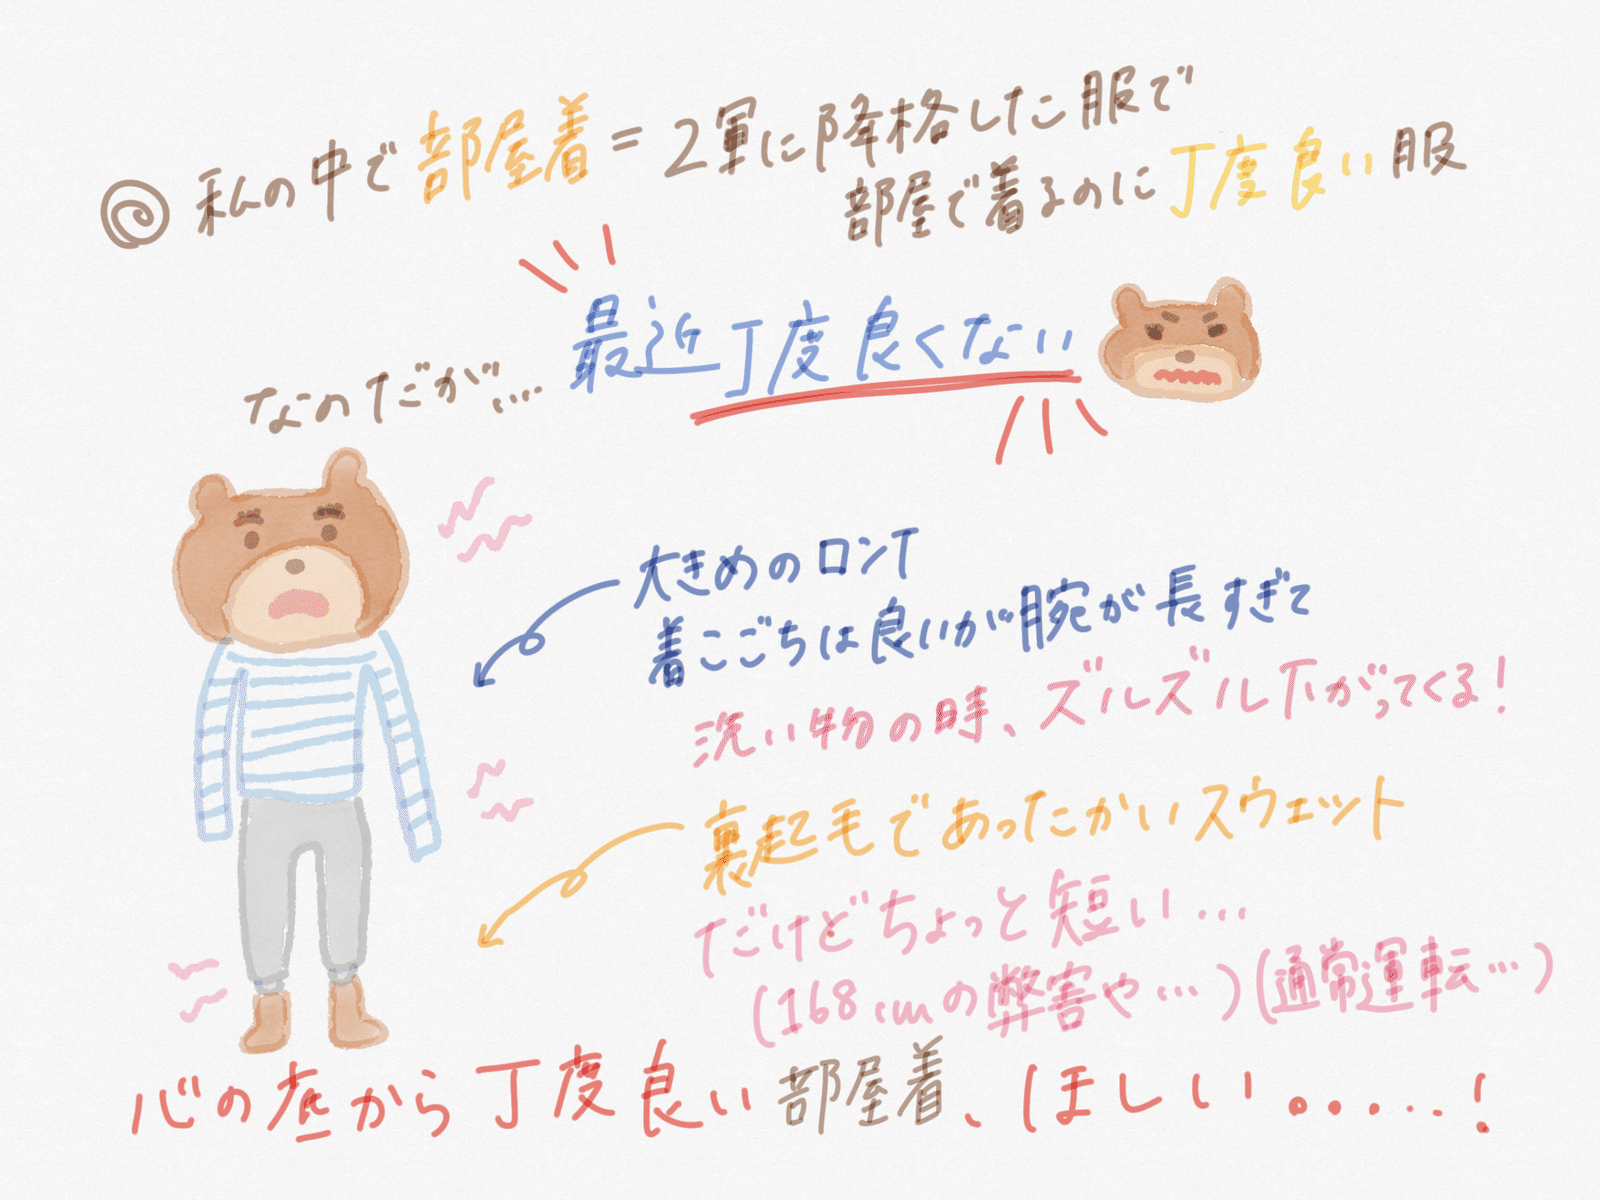 私の中で部屋着=2軍に降格した服で
部屋で着るのに丁度良い服
なのだが…最近丁度良くない
大きめのロンT
着こごちは良いが腕が長すぎて
洗い物の時、ズルズル下がってくる!
裏起毛であったかいスウェット
だけどちょっと短い…
(168cmの弊害や…)(通常運転…)
心の底から丁度良い部屋着、ほしい。。。...!